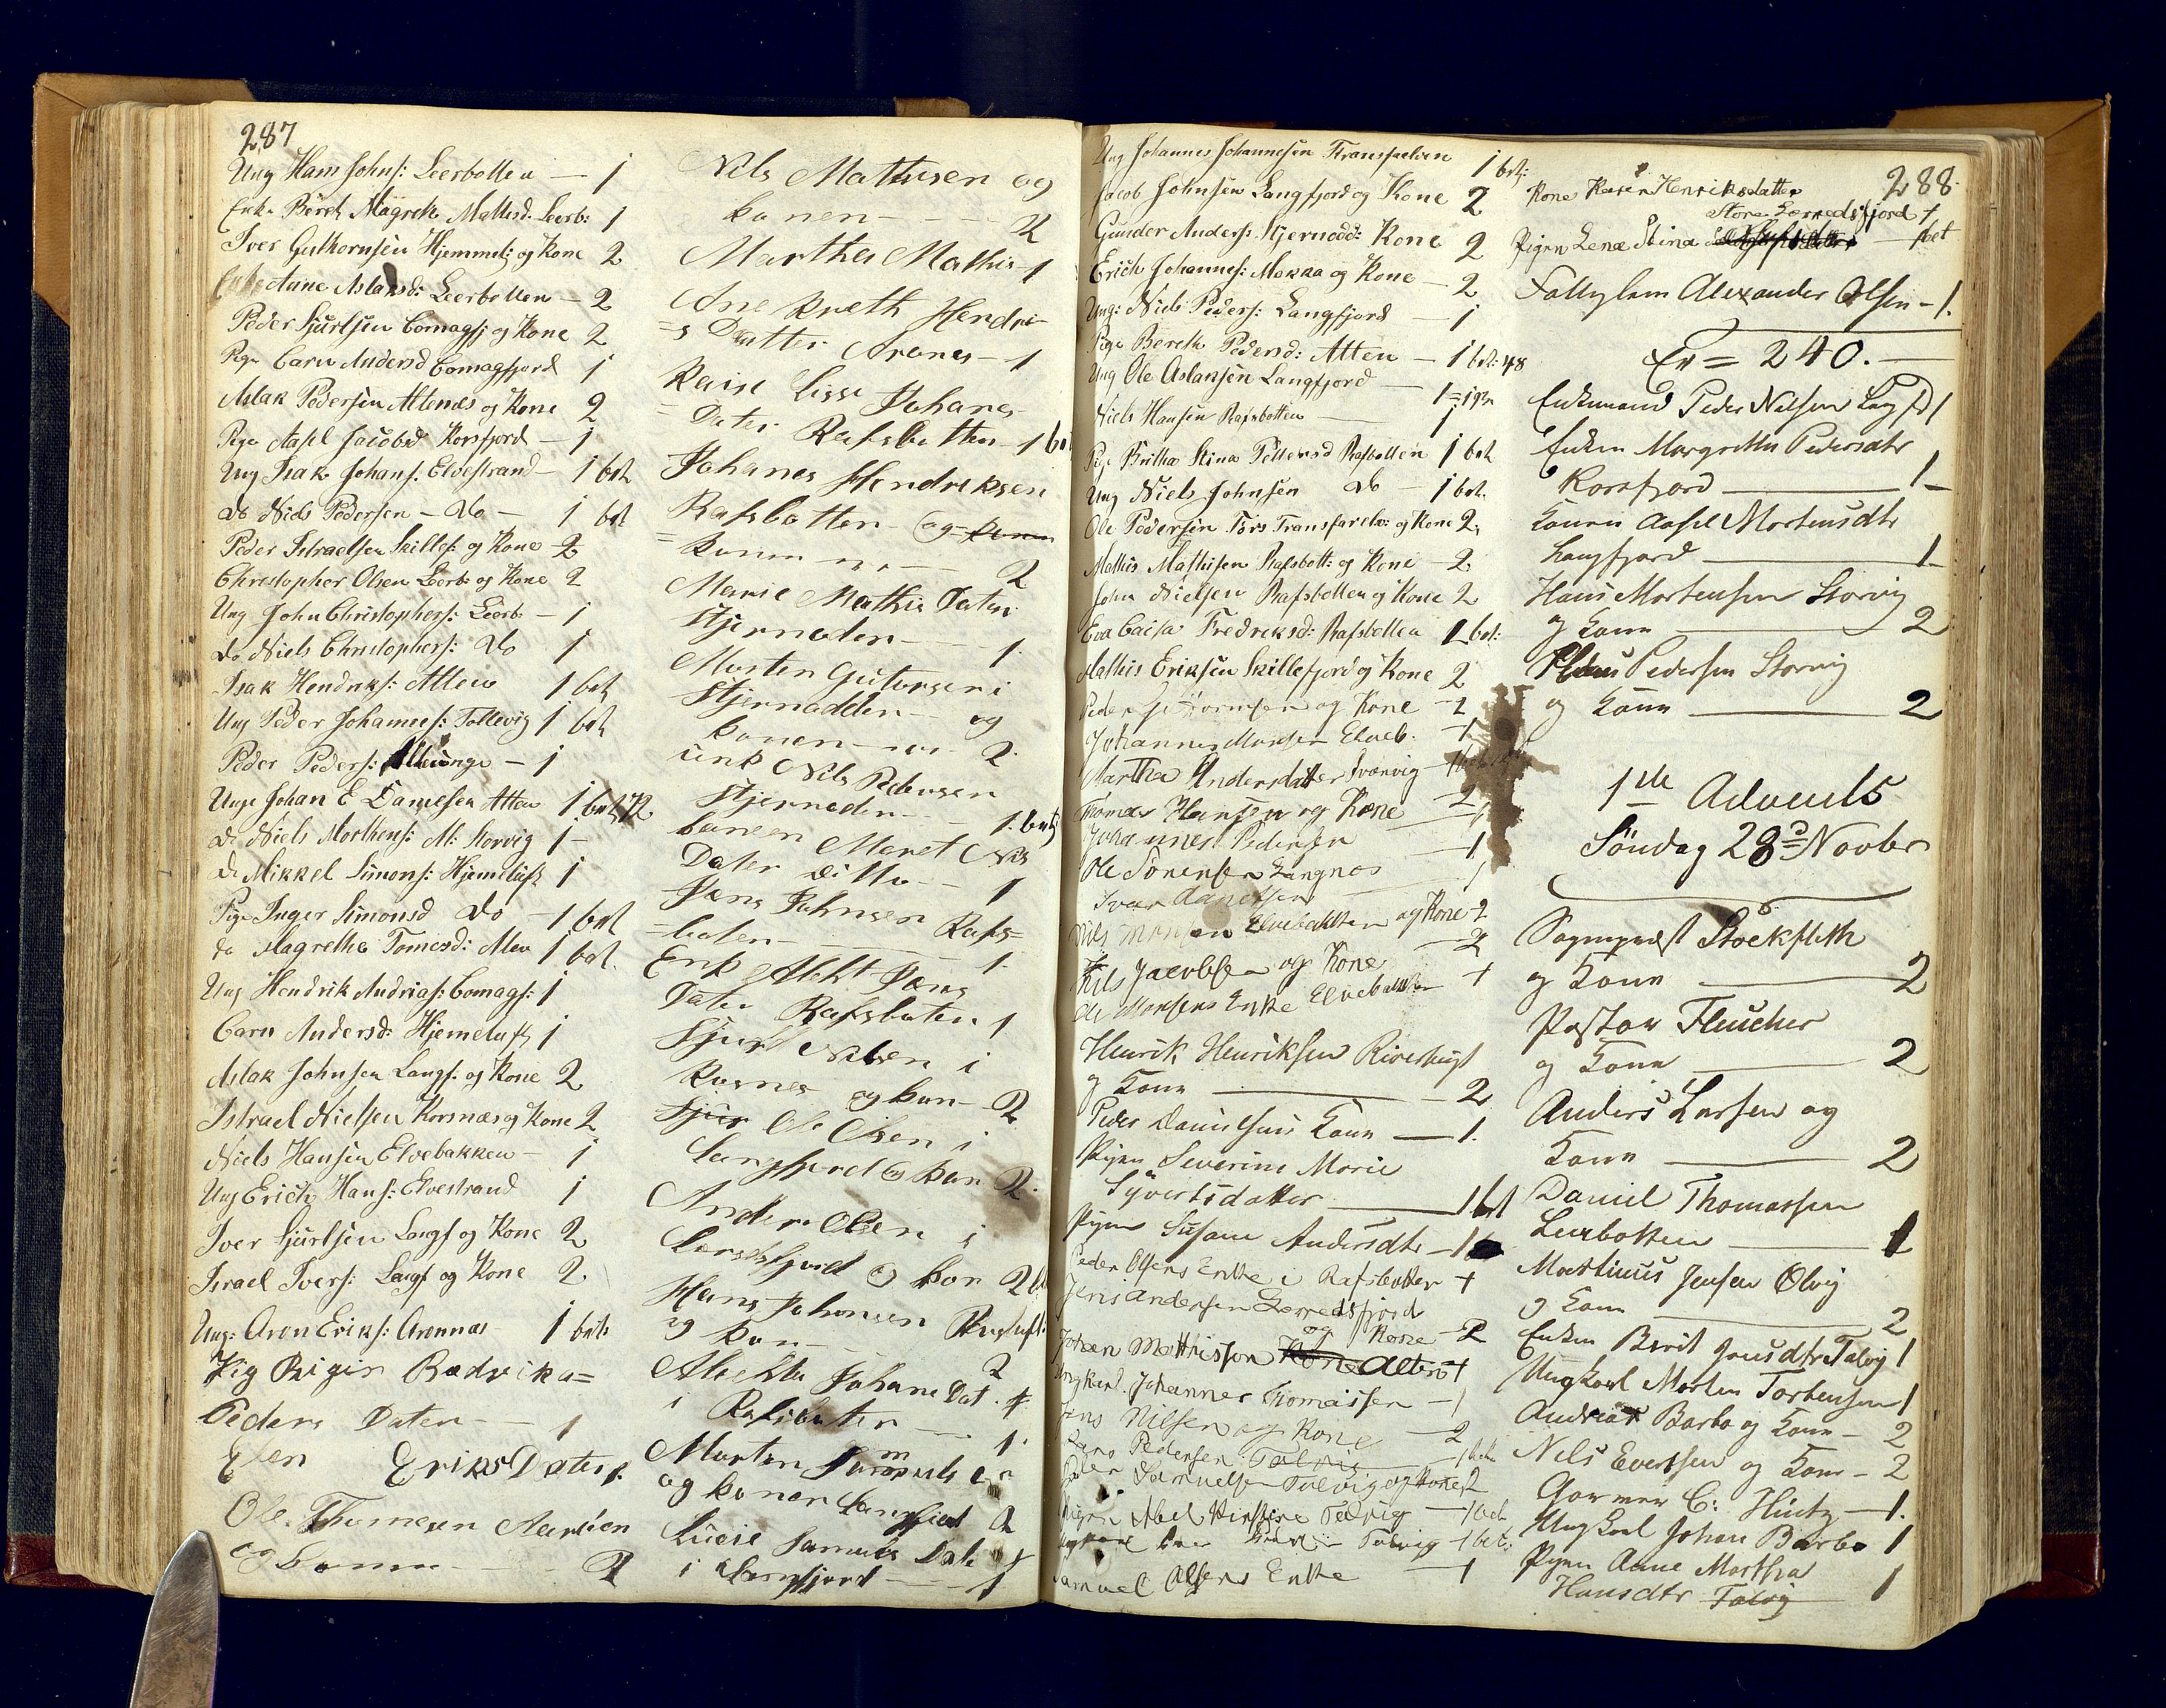 287
Ung Hans Johns: Leerbotten — 1
Enke Bereth Magreth Mattisd: Leerb: 1
Iver Guthornsen Hjemmel: og Kone 2
Enke Anne Aslaksd: Leerbotten — 2
Peder Sjurtsen Comagfj og Kone 2
Pige Caru Andersd Comagfjord 1
Aslak Pedersen Altenæs og Kone 2
Pige Aasel Jacobsd Korsfjord — 1
Ung Isak Johans: Elvestrand — 1 bet
do Niels Pedersen — do — 1 bet
Peder Istraelsen Skillef: og Kone 2
Christopher Olsen Leerb: og Kone 2
Ung John Christophers: Leerb: — 1
do Niels Christophers: do 1
Isak Hendriks: Alten 1 bet
Ung Peder Johannes: Tallevig 1 bet
Peder Peders: — 1
Unge Johan E Danielsen Alten 1 bet 72
do Niels Morthens: M: Storvig 1 —
do Mikkel Simons: Hjemeluft 1
Pige Inger Simonsd do — 1 bet
do Magrethe Tomesd: 1 bet.
Ung Hendrik Andrias: Comagf: 1
Caru Andersd: Hjemeluft 1
Aslak Johnsen Langf: og Kone 2
Istrael Nielsen Korsnæs og Kone 2
Niels Hansen Elvebakken — 1
Ung Erich Hans: Elvestrand 1
Iver Sjurtsen Langf og Kone 2
Israel Ivers: Langf og Kone 2
Ung: Aron Eriks: Aronnæs 1 bet:
Pig Birgir Rædrika=
Peders Dater — 1
Elen Eriks Dater 1.
Ole Thomesen
og Konne — 2
Nils Mathisen og
konen — 2
Martha Mathis — 1
Ane Hendri-
=s Datter Arones — 1
Kaise Lisse Johanes
=Dater Rafsbotten — 1 bet
Johanes Hendriksen
Rafsbotten og konen
= konen — 2
Marie Mathis Dater
Stjernoden — 1.
Morten Gutormsen i
Stjernodden — og
konen — 2.
unk Nils Pedersen
Stjernoden — 1. bet
Caren Maret Nils
Dater ditto — 1
Hans Johnsen Rafs=
=boten — 1.
Enk Hans
Dater Rafsboten 1
Sjurt Nilsen i
Kosnes og kon — 2
Sjur Ole Olsen i
Langfjord og kon 2.
Anders Olsen i
Lærredsfjord og kon 2
Hans Johansen
og kon — 2
Johans Dat.
i Rafsboten — 1.
Morten Samuels en
og konen Langfjord 2
Lucie Samuels Dat
i Langfjord — 1
Ung Johannes Johannesen Transfaelven 1 bet:
Jacob Johnsen Langfjord og Kone 2
Gunder Anders: Stjernodd: Kone 2
Erich Johannes: Mokka og Kone — 2
Ung: Niels Peders: Langfjord — 1
Pige Bereth Pedersd: Alten — 1 bet: 48
Ung Ole Aslaksen Langfjord — 1
Niels Hansen Rafsbotten — 1
Pige Britha Stina Pettersd Rafsbotten 1 bet
Ung Niels Johnsen do — 1 bet.
Ole Pedersen Fors Transfarelv: og Kone 2,
Mathis Mathisen Rafsbott: og Kone — 2.
John Nielsen Rafsbotten og Kone 2
Eva Caisa Fredriksd: Rafsbotten 1 bet:
Mathis Eriksen Skillefjord og Kone 2
Peder og Kone — 2
Johannes Monsen Elveb. — 1
Martha Andersdatter — 1
Thomas Hansen og Kone — 2
Johannes Pedersen — 1
Ole Sörensen Langnos — 1
Ivar
Nils Monsen Elvebakken og Kone — 2
Nils Jacobsen og Kone — 2
Ole Monsens Enke Elvebakken 1
Henrik Henriksen
og Konn — 2
Peder Danielsens Konn — 1.
Pigen Severine Marie
Syvertsdatter — 1 bet
Pigen Susane Andersdtr — 1
Peder Olsens Enke i Rafsbotten 1
Jens Andersen Lerredsfjord
og Kone — 2
Johan Mathissen Kone Alten 1
Ungkarl. Johannes Thomassen — 1
Jens Nilsen og Kone — 2
Lars Pedersen Talvig — 1 bet
Peder Samuelsen Talvig og Kone 2
Pigen Abel Kirstine Talvig — 1 bet
Ungkarl Talvig 1 bet:
Samuel Olsens Enke — 1
288.
Kone Karen Henriksdatter
Store Lerredsfjord 1
Pigen Lena Stina — 1 bet
Alexander Olsen — 1.
Er = 240. —
Enkemand Peder Nilsen 1
Enken Margrethe Pedersdtr
Korsfjord — 1 —
Konen Aasel Mortensdtr
Langfjord — 1 —
Hans Mortensen Storvig
og Konn — 2
Pedersen Storvig
og Konn — 2
1ste Advents
Söndag 28de Novbr
Sognepræst Stockfleth
og Konn — 2
Pastor Fleischer
og Konn — 2
Anders Larsen og
Konn — 2
Daniel Thomassen
Leerbotten — 1
Martinus Jensen Olvig
og Konn — 2
Enken Berit Jensdtr Talvig 1
Ungkarl Morten Torbensen 1
Andreas Barbo og Konn — 2
Nils Evertsen og Konn — 2
Garver C: Hintz — 1.
Ungkarl Johan Barbo 1
Pigen Anne Martha
Hansdtr Talvig 1